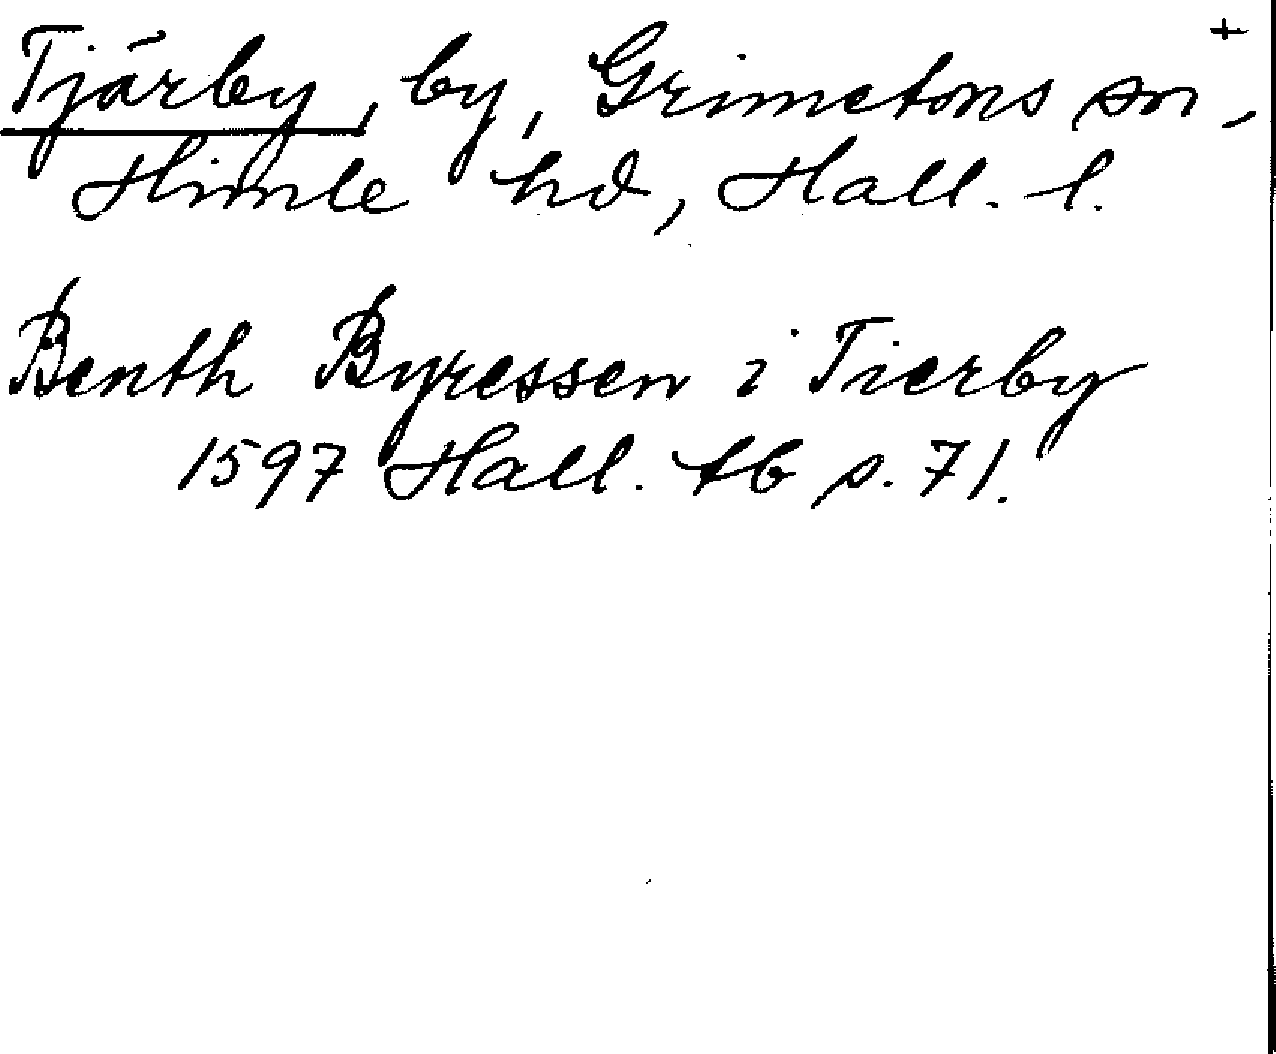 +
Tjärby, by, Grimetons sn,
Himle hd, Hall. l.
Benth Byressen i Tierby
1597 Hall. tb s. 71.